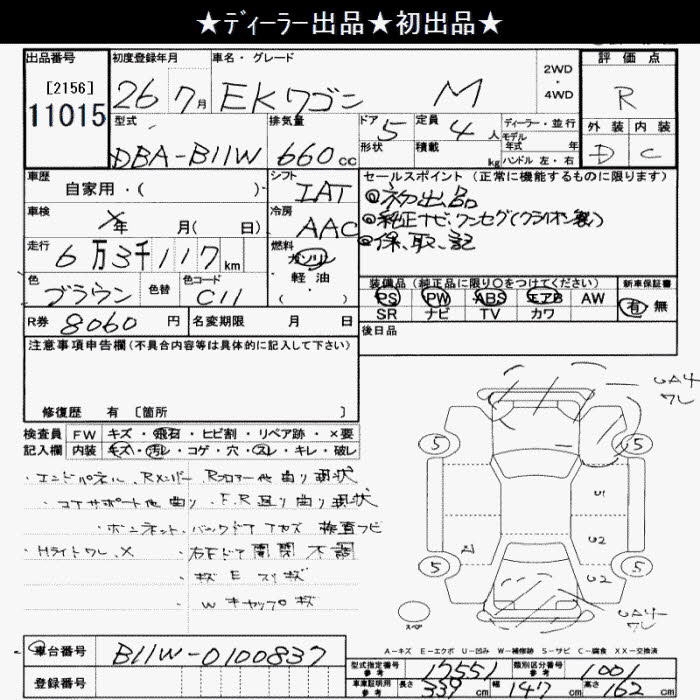 ★ﾃﾞｨｰﾗｰ出品★初出品★
出品番号 初度登録年月 車名・グレード 2WD・4WD 評価点
[2156]
11015
26 7月 EKワゴン M R
型式 排気量 ドア 定員 ディーラー・並行 外装 内装
DBA-B11W 660cc 5 4人 モデル 年式 年 D C
形状 積載 kg ハンドル 左・右
車歴 シフト セールスポイント (正常に機能するものに限ります)
自家用・( ) IAT ◎初出品
車検 冷房 ◎純正ナビ、ワンセグ(クライオン製)
×年 月(日) AAC ◎保、取、記
走行 燃料
6万3千117km ガソリン
軽油
( )
色 色替 色コード 装備品(純正品に限り○をつけてください) 新車保証書
ブラウン C11 PS PW ABS エアB AW 有 無
SR ナビ TV カワ
R券 8060円 名変期限 月 日 後日品
注意事項申告欄(不具合内容等は具体的に記入して下さい)
修復歴 有 〔箇所 〕
検査員 FW キズ・飛石・ヒビ割・リペア跡・×要
記入欄 内装 キズ・汚レ・コゲ・穴・スレ・キレ・破レ
・エンドパネル、Rメンバー、Rフロアー他曲り現状
・コアサポート他曲り・F.R廻り曲り現状
・ボンネット・バックドア
・Hライトワレ、X ・右Fドア開閉不調
・Wキャップ
5 5 5 5
U1
U2
U2
A1
UA4
ワレ
UA4
ワレ
スペア
A-キズ E-エクボ U-凹み W-補修跡 S-サビ C-腐食 XX-交換済
車台番号 B11W-0100837
登録番号
型式指定番号 参考 17551 類別区分番号 参考 1001
車庫証明用 参考 長さ 339cm 幅 147cm 高さ 162cm